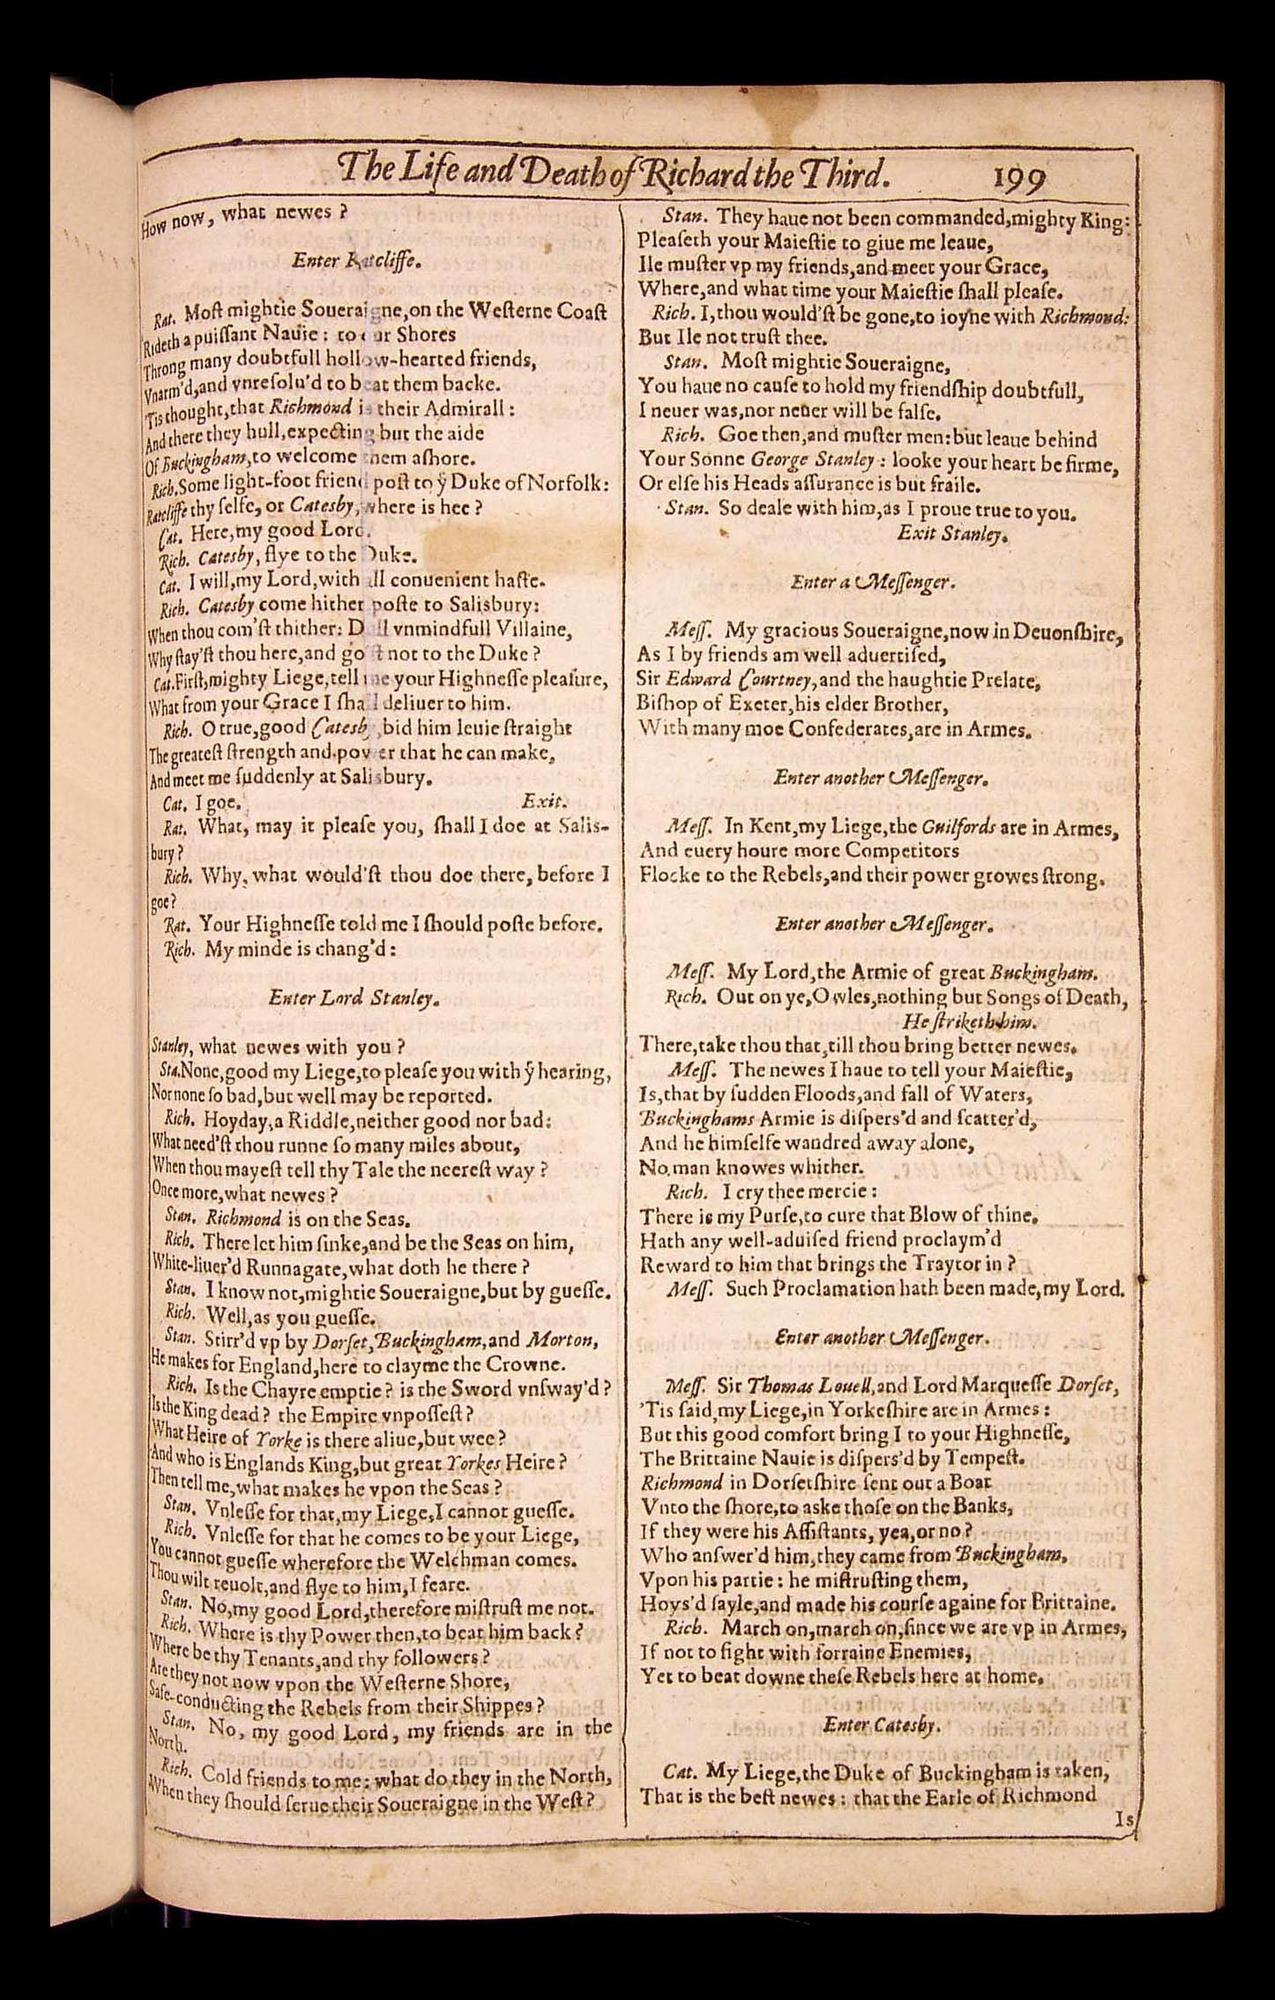 The Life and Death of Richard the Third. 199
How now, what newes ?
Enter Ratcliffe.
Rat. Moſt mightie Soueraigne,on the Weſterne Coaſt
Rideth a puiſſant Nauie : to our Shores
Throng many doubtfull hollow-hearted friends,
Vnarm'd,and vnreſolu'd to beat them backe.
'Tis thought,that Richmond is their Admirall :
And there they hull,expecting but the aide
Of Buckingham,to welcome them aſhore.
Rich.Some light-foot friend poſt to yͤ Duke of Norfolk:
Ratcliffe thy ſelfe, or Catesby, where is hee ?
Cat. Here,my good Lord.
Rich. Catesby, flye to the Duke.
Cat. I will,my Lord,with all conuenient haſte.
Rich. Catesby come hither poſte to Salisbury:
When thou com'ſt thither: Dull vnmindfull Villaine,
Why ſtay'ſt thou here,and go'ſt not to the Duke ?
Cat.Firſt,mighty Liege,tell me your Highneſſe pleaſure,
What from your Grace I ſhall deliuer to him.
Rich. O true,good Catesby,bid him leuie ſtraight
The greateſt ſtrength and power that he can make,
And meet me ſuddenly at Salisbury.
Cat. I goe. Exit.
Rat. What, may it pleaſe you, ſhall I doe at Salis-
bury ?
Rich. Why, what would'ſt thou doe there, before I
goe?
Rat. Your Highneſſe told me I ſhould poſte before.
Rich. My minde is chang'd :
Enter Lord Stanley.
Stanley, what newes with you ?
Sta.None,good my Liege,to pleaſe you with yͤ hearing,
Nor none ſo bad,but well may be reported.
Rich. Hoyday,a Riddle,neither good nor bad:
What need'ſt thou runne ſo many miles about,
When thou mayeſt tell thy Tale the neereſt way ?
Once more,what newes ?
Stan. Richmond is on the Seas.
Rich. There let him ſinke,and be the Seas on him,
White-liuer'd Runnagate,what doth he there ?
Stan. I know not,mightie Soueraigne,but by gueſſe.
Rich. Well,as you gueſſe.
Stan. Stirr'd vp by Dorſet,Buckingham,and Morton,
He makes for England,here to clayme the Crowne.
Rich. Is the Chayre emptie ? is the Sword vnſway'd ?
Is the King dead ? the Empire vnpoſſeſt ?
What Heire of Yorke is there aliue,but wee ?
And who is Englands King,but great Yorkes Heire ?
Then tell me,what makes he vpon the Seas ?
Stan. Vnleſſe for that,my Liege,I cannot gueſſe.
Rich. Vnleſſe for that he comes to be your Liege,
You cannot gueſſe wherefore the Welchman comes.
Thou wilt reuolt,and flye to him,I feare.
Stan. No,my good Lord,therefore miſtruſt me not.
Rich. Where is thy Power then,to beat him back ?
Where be thy Tenants,and thy followers ?
Are they not now vpon the Weſterne Shore,
Safe-conducting the Rebels from their Shippes ?
Stan. No, my good Lord, my friends are in the
North.
Rich. Cold friends to me: what do they in the North,
When they ſhould ſerue their Soueraigne in the Weſt ?
Stan. They haue not been commanded,mighty King:
Pleaſeth your Maieſtie to giue me leaue,
Ile muſter vp my friends,and meet your Grace,
Where,and what time your Maieſtie ſhall pleaſe.
Rich. I,thou would'ſt be gone,to ioyne with Richmond:
But Ile not truſt thee.
Stan. Moſt mightie Soueraigne,
You haue no cauſe to hold my friendſhip doubtfull,
I neuer was,nor neuer will be falſe.
Rich. Goe then,and muſter men:but leaue behind
Your Sonne George Stanley : looke your heart be firme,
Or elſe his Heads aſſurance is but fraile.
Stan. So deale with him,as I proue true to you.
Exit Stanley.
Enter a Meſſenger.
Meſſ. My gracious Soueraigne,now in Deuonſhire,
As I by friends am well aduertiſed,
Sir Edward Courtney,and the haughtie Prelate,
Biſhop of Exeter,his elder Brother,
With many moe Confederates,are in Armes.
Enter another Meſſenger.
Meſſ. In Kent,my Liege,the Guilfords are in Armes,
And euery houre more Competitors
Flocke to the Rebels,and their power growes ſtrong.
Enter another Meſſenger.
Meſſ. My Lord,the Armie of great Buckingham.
Rich. Out on ye,Owles,nothing but Songs of Death,
He ſtriketh him.
There,take thou that,till thou bring better newes.
Meſſ. The newes I haue to tell your Maieſtie,
Is,that by ſudden Floods,and fall of Waters,
Buckinghams Armie is diſpers'd and ſcatter'd,
And he himſelfe wandred away alone,
No man knowes whither.
Rich. I cry thee mercie :
There is my Purſe,to cure that Blow of thine.
Hath any well-aduiſed friend proclaym'd
Reward to him that brings the Traytor in ?
Meſſ. Such Proclamation hath been made,my Lord.
Enter another Meſſenger.
Meſſ. Sir Thomas Louell,and Lord Marqueſſe Dorſet,
'Tis ſaid,my Liege,in Yorkeſhire are in Armes :
But this good comfort bring I to your Highneſſe,
The Brittaine Nauie is diſpers'd by Tempeſt.
Richmond in Dorſetſhire ſent out a Boat
Vnto the ſhore,to aske thoſe on the Banks,
If they were his Aſſiſtants, yea,or no ?
Who anſwer'd him,they came from Buckingham,
Vpon his partie : he miſtruſting them,
Hoys'd ſayle,and made his courſe againe for Brittaine.
Rich. March on,march on,ſince we are vp in Armes,
If not to fight with forraine Enemies,
Yet to beat downe theſe Rebels here at home.
Enter Catesby.
Cat. My Liege,the Duke of Buckingham is taken,
That is the beſt newes : that the Earle of Richmond
Is